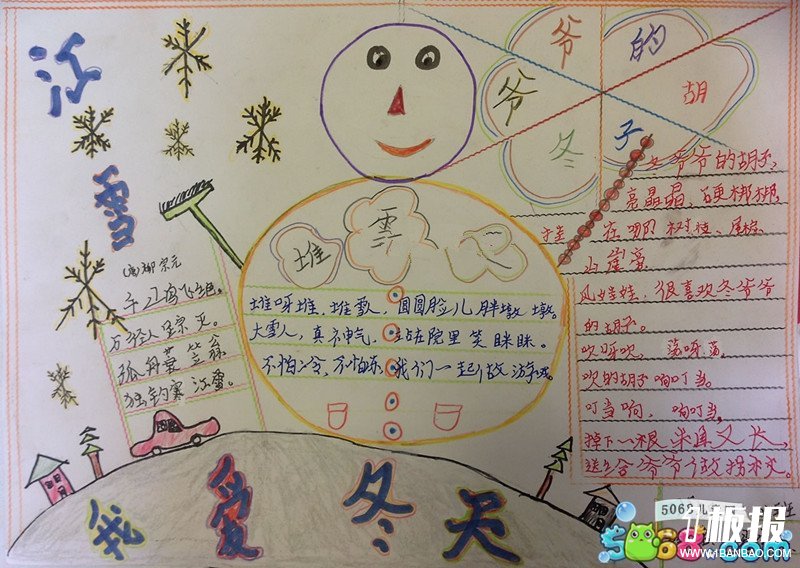 江
雪
(唐)柳宗元
千山鸟飞绝。
万径人踪灭。
孤舟蓑笠翁
独钓寒江雪。
堆雪人
堆呀堆,堆雪人,圆圆脸儿胖墩墩。
大雪人,真神气,站在院里笑眯眯。
不怕冷,不怕冻,我们一起做游戏。
冬爷爷的胡子
冬爷爷的胡子,
亮晶晶,硬梆梆
挂在哪 树枝、屋檐
山崖旁
风娃娃,很喜欢冬爷爷
的胡子。
吹呀吹,荡呀荡,
吹的胡子响叮当。
叮当响,响叮当,
掉下一根 米耳又长,
送给爷爷做拐杖。
我爱冬天
506
1板报
WWW.1BANBAO.COM
班